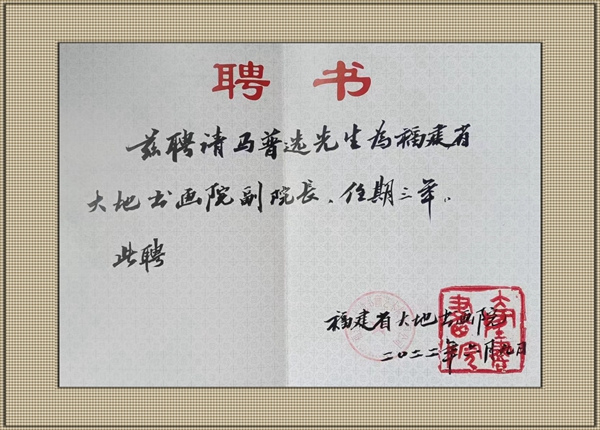 聘书
兹聘请马普选先生为福建省
大地书画院副院长，任期三年。
此聘
福建省大地书画院
二〇二二年六月九日